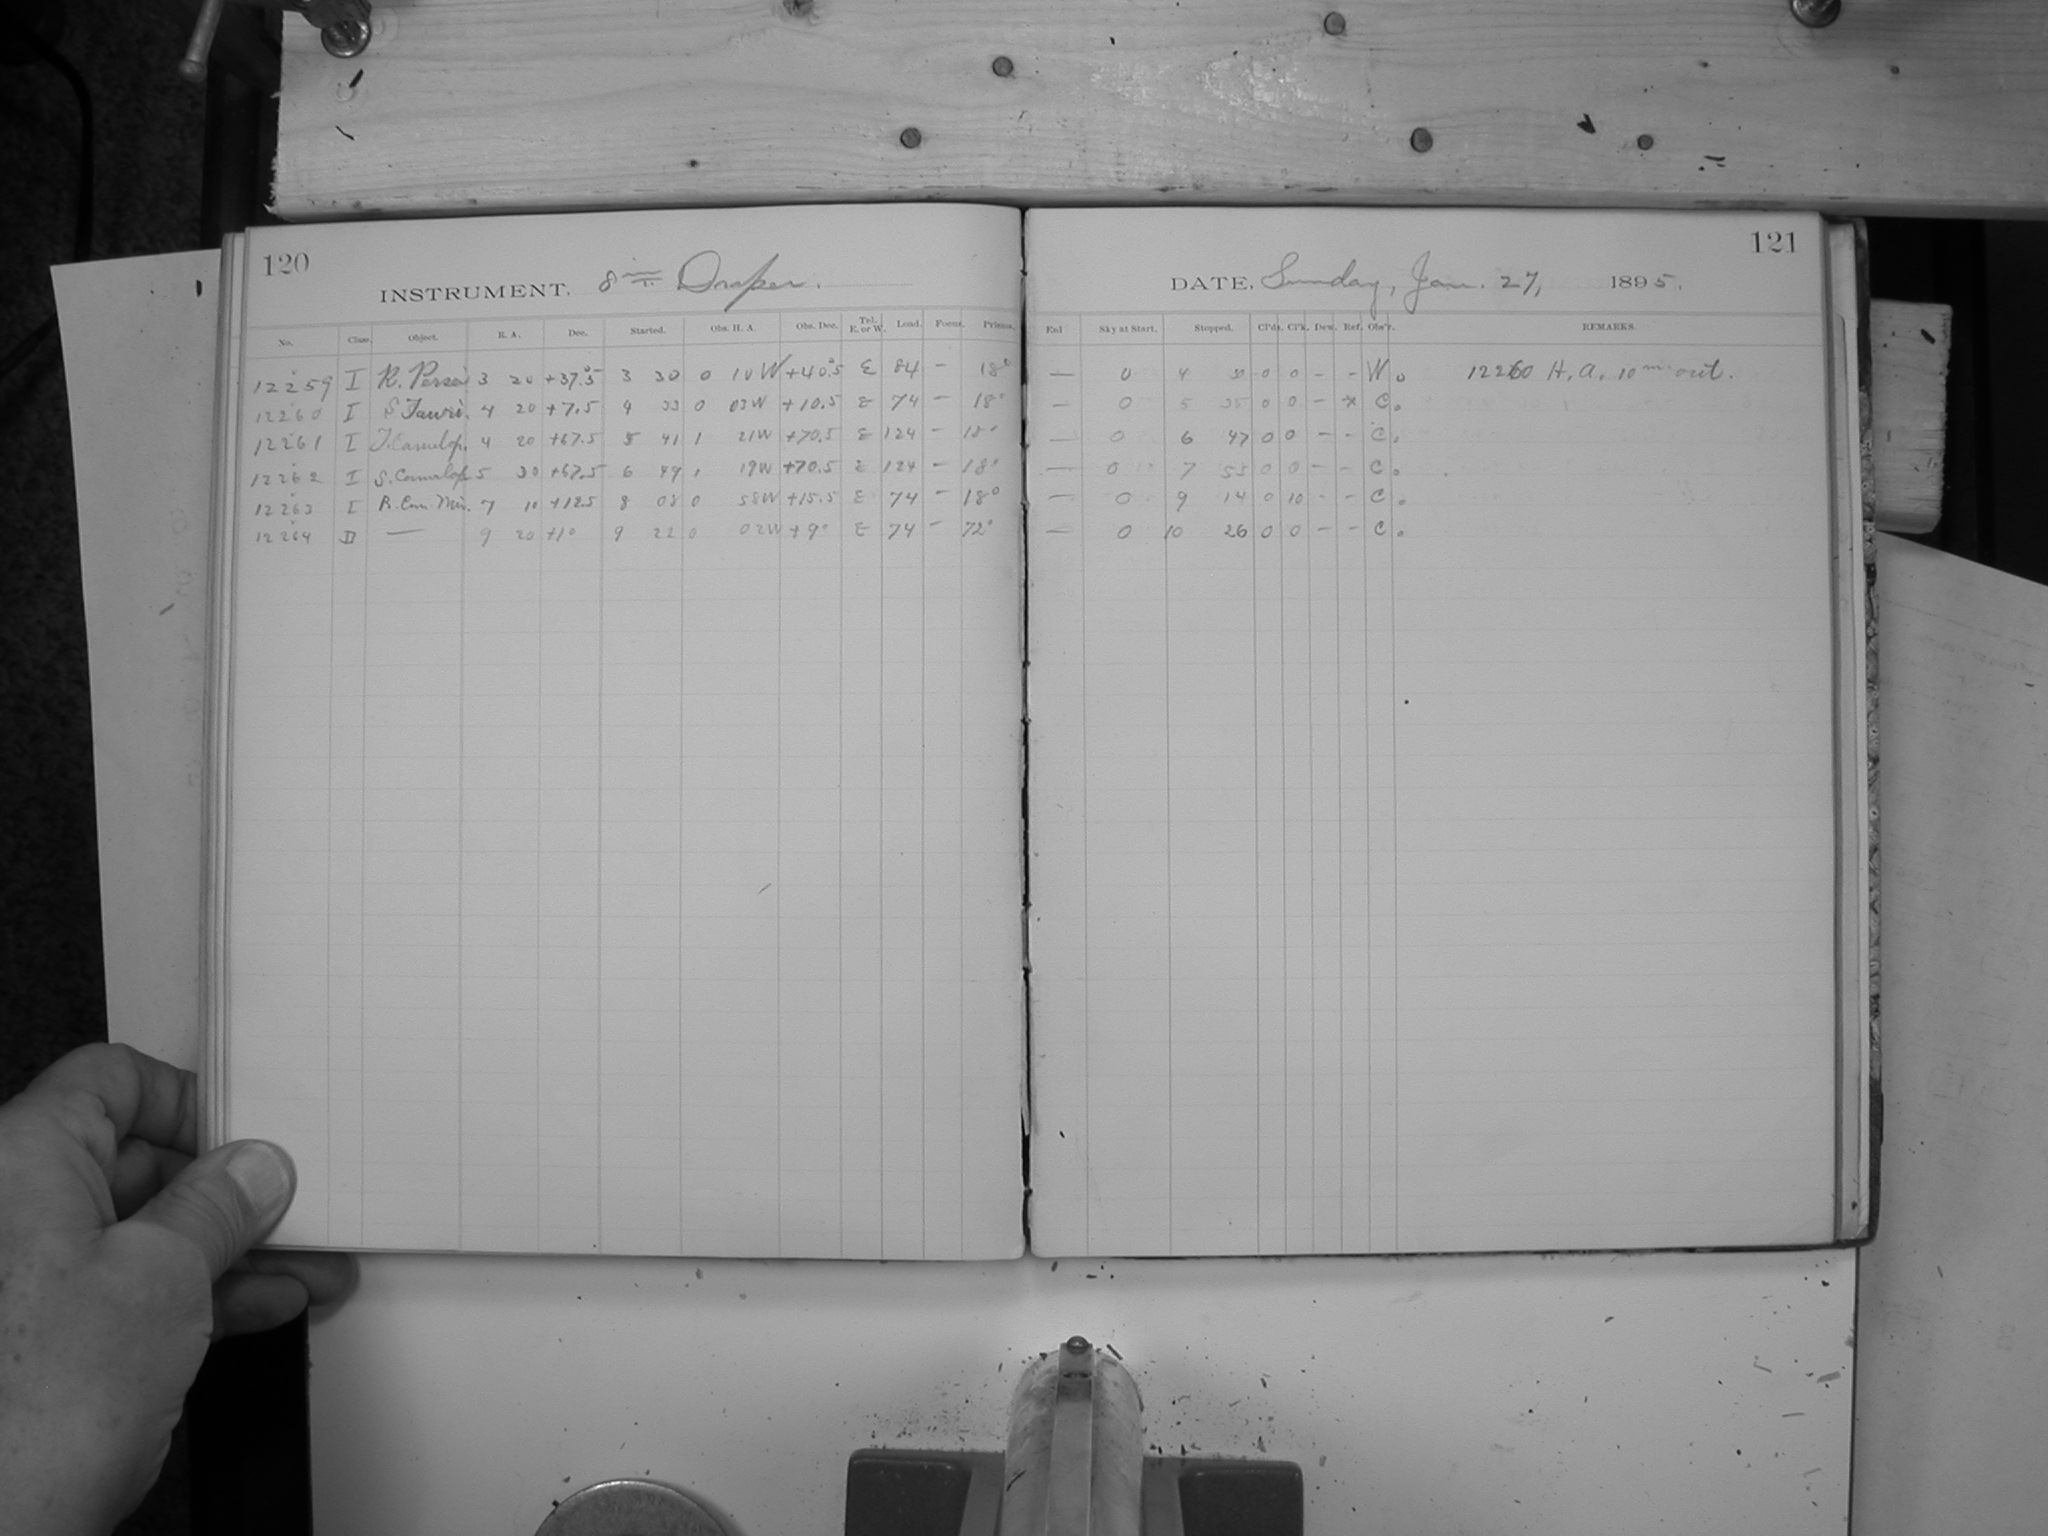 120
INSTRUMENT. 8 in. Draper.
No. Class. Object. R. A. Dec. Started. Obs. H. A. Obs. Dec. Tel. E. or W. Load. Focus. Prisms.
12259 I R. Persei 3 20 +37.5 3 30 0 10 W +40.5 E 84 – 18°
12260 I S Tauri. 4 20 +7.5 4 33 0 03 W +10.5 E 74 – 18°
12261 I T. Camelop. 4 20 +67.5 5 41 1 21 W +70.5 E 124 – 18°
12262 I S. Camelop. 5 30 +67.5 6 49 1 19 W +70.5 E 124 – 18°
12263 I R. Can. Min. 7 10 +12.5 8 08 0 58 W +15.5 E 74 – 18°
12264 D — 9 20 +1° 9 22 0 02 W +9° E 74 – 72°
121
DATE, Sunday, Jan. 27, 1895.
Rel Sky at Start. Stopped. Cl'ds. Cl'k. Dew. Ref. Obs'r. REMARKS.
— 0 4 30 0 0 – – W. 12260 H. A. 10 m out.
– 0 5 35 0 0 – * C.
— 0 6 47 0 0 – – C.
— 0 7 55 0 0 – – C.
— 0 9 14 0 10 – – C.
— 0 10 26 0 0 – – C.